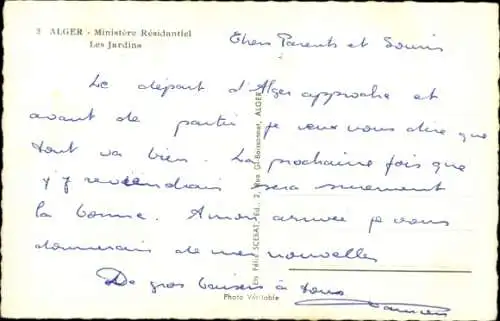 2 ALGER - Ministère Résidentiel
Les Jardins
Chers Parents et Souris
Le départ d'Alger approche et
avant de partir je veux vous dire que
tout va bien. La prochaine fois que
j'y reviendrais sera surement
la bonne. A mon arrivée je vous
donnerais de mes nouvelles
De gros baisers à tous
Photo Véritable